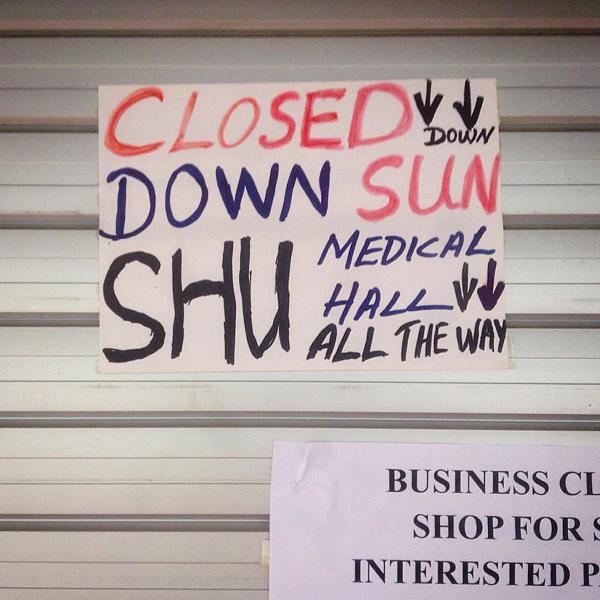 CLOSED
DOWN
DOWN SUN
SHU MEDICAL
HALL
ALL THE WAY
BUSINESS CL
SHOP FOR S
INTERESTED P